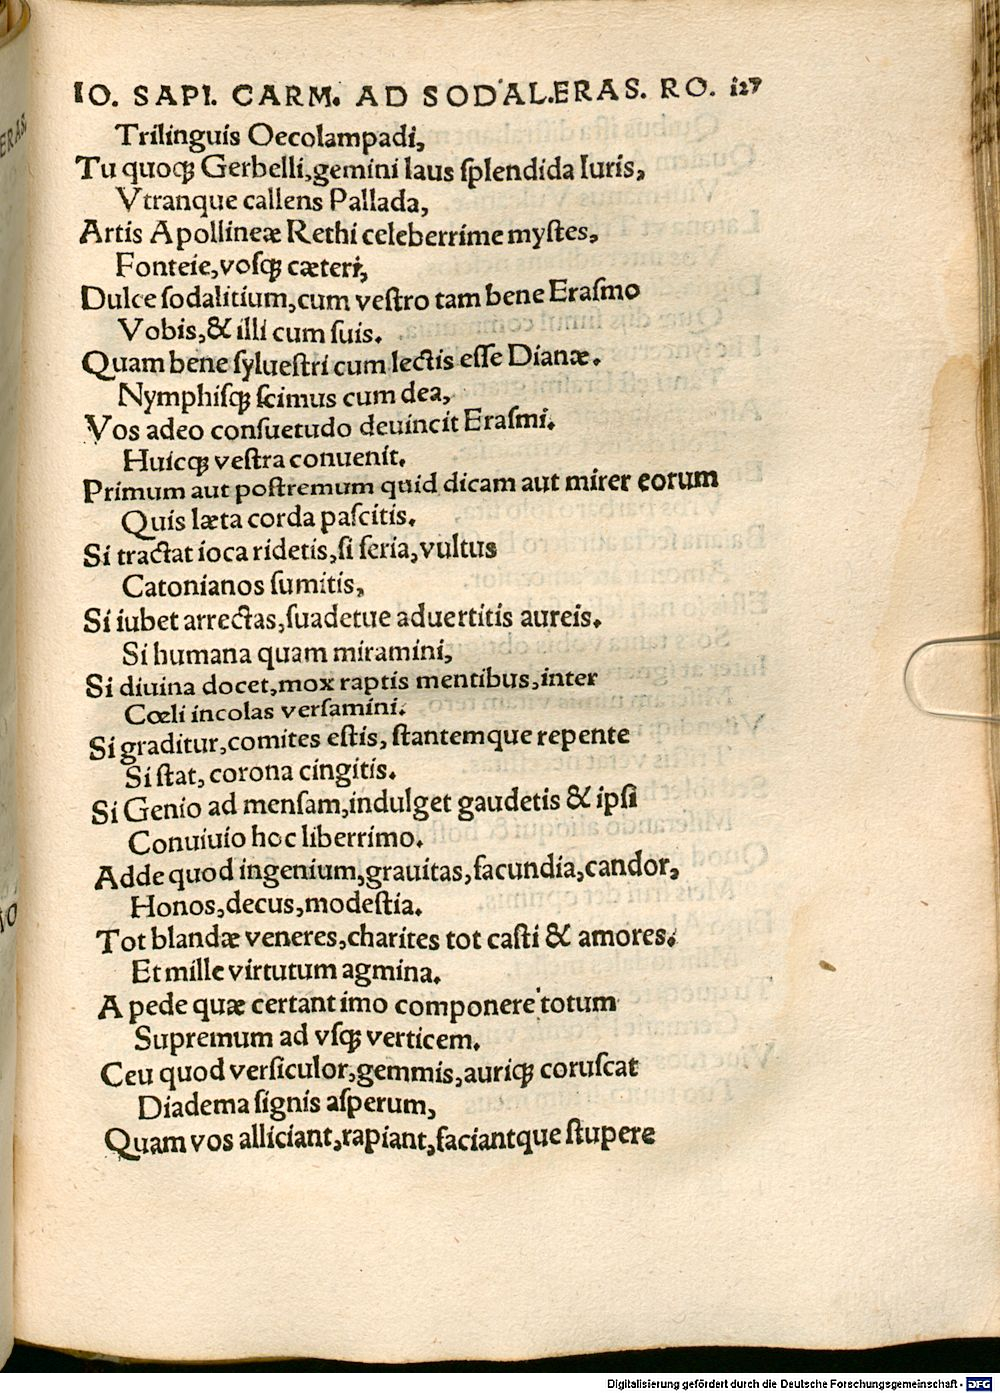 IO. SAPI. CARM. AD SODAL.ERAS. RO. 127
Trilinguis Oecolampadi,
Tu quoqꝫ Gerbelli,gemini laus ſplendida Iuris,
Vtranque callens Pallada,
Artis Apollineæ Rethi celeberrime myſtes,
Fonteie,voſqꝫ cæteri,
Dulce ſodalitium,cum veſtro tam bene Eraſmo
Vobis,& illi cum ſuis.
Quam bene ſylueſtri cum lectis eſſe Dianæ.
Nymphiſqꝫ ſcimus cum dea,
Vos adeo conſuetudo deuincit Eraſmi.
Huicqꝫ veſtra conuenit.
Primum aut poſtremum quid dicam aut mirer eorum
Quis læta corda paſcitis.
Si tractat ioca ridetis,ſi ſeria,vultus
Catonianos ſumitis,
Si iubet arrectas,ſuadetue aduertitis aureis.
Si humana quam miramini,
Si diuina docet,mox raptis mentibus,inter
Cœli incolas verſamini.
Si graditur,comites eſtis, ſtantemque repente
Si ſtat, corona cingitis.
Si Genio ad menſam,indulget gaudetis & ipſi
Conuiuio hoc liberrimo.
Adde quod ingenium,grauitas,facundia,candor,
Honos,decus,modeſtia.
Tot blandæ veneres,charites tot caſti & amores.
Et mille virtutum agmina.
A pede quæ certant imo componere totum
Supremum ad vſqꝫ verticem.
Ceu quod verſiculor,gemmis,auriqꝫ coruſcat
Diadema ſignis aſperum,
Quam vos alliciant,rapiant,faciantque ſtupere
Digitalisierung gefördert durch die Deutsche Forschungsgemeinschaft - DFG